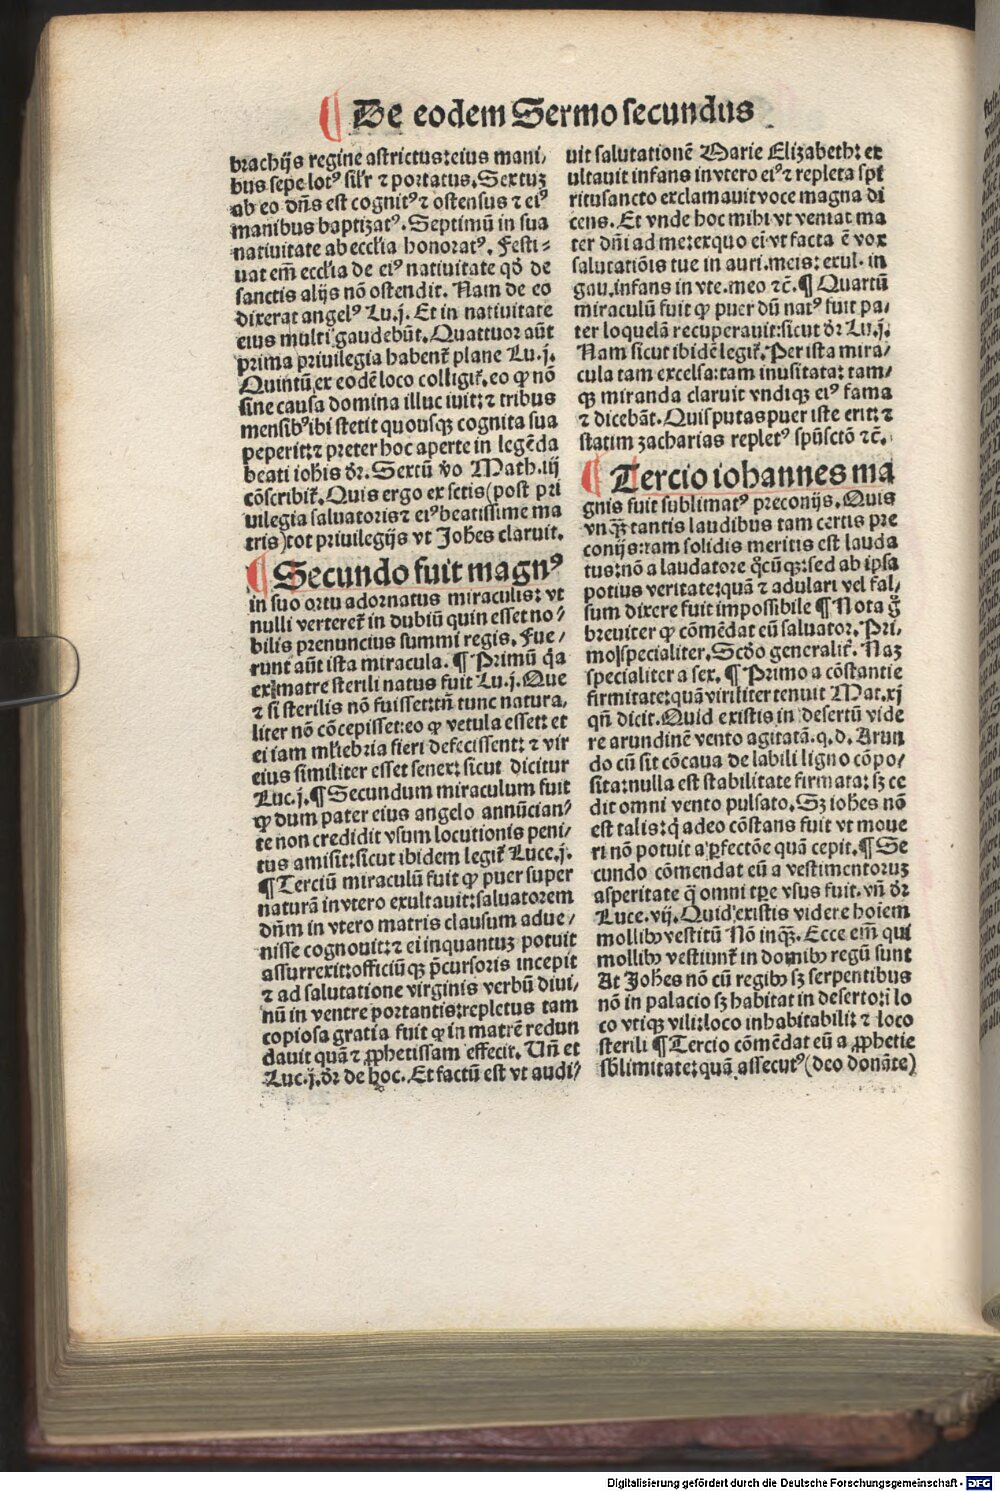 ¶ De eodem Sermo secundus
brachijs regine astrictus: eius mani⸗
bus sepe lotꝰ silʼr ⁊ portatus. Sextuꝫ
ab eo dn̄s est cognitꝰ ⁊ ostensus ⁊ eiꝰ
manibus baptizatꝰ. Septimū in sua
natiuitate ab eccl'ia honoratꝰ. Festi⸗
uat em̄ eccl'ia de eiꝰ natiuitate qď de
sanctis alijs nō ostendit. Nam de eo
dixerat angelꝰ Lu.j. Et in natiuitate
eius multi gaudebūt. Quattuor aūt
prima priuilegia habent᷑ plane Lu.j.
Quintū ex eodē loco colligit᷑. eo ꝙ nō
sine causa domina illuc iuit: ⁊ tribus
mensibꝰ ibi stetit quousqꝫ cognita sua
peperit: ⁊ preter hoc aperte in legēda
beati iohis dr̄. Sextū v̄o Math.iij
cōscribit᷑. Quis ergo ex sctis (post pri
uilegia saluatoris ⁊ eiꝰ beatissime ma
tris) tot priuilegijs vt Johes claruit.
¶ Secundo fuit magnꝰ
in suo ortu adornatus miraculis: vt
nulli verteret᷑ in dubiū quin esset no⸗
bilis prenuncius summi regis. Fue⸗
runt aūt ista miracula. ¶ Primū q̇a
ex matre sterili natus fuit Lu.j. Que
⁊ si sterilis nō fuisset: tn̄ tunc natura⸗
liter nō cōcepisset: eo ꝙ vetula esset: et
ei iam ml'iebria fieri defecissent: ⁊ vir
eius similiter esset senex: sicut dicitur
Luc.j. ¶ Secundum miraculum fuit
ꝙ dum pater eius angelo annūcian⸗
te non credidit vsum locutionis peni⸗
tus amisit: sicut ibidem legit᷑ Luce.j.
¶ Terciū miraculū fuit ꝙ puer super
naturā in vtero exultauit: saluatorem
dn̄m in vtero matris clausum adue⸗
nisse cognouit: ⁊ ei inquantuꝫ potuit
assurrexit: officiūqꝫ p̄cursoris incepit
⁊ ad salutatione virginis verbū diui⸗
nū in ventre portantis: repletus tam
copiosa gratia fuit ꝙ in matrē redun
dauit quā ⁊ ꝓphetissam effecit. Un̄ et
Luc.j. dr̄ de hoc. Et factū est vt audi⸗
uit salutationē Marie Elizabeth: ex
ultauit infans in vtero eiꝰ ⁊ repleta spū
ritusancto exclamauit voce magna di
cens. Et vnde hoc mihi vt veniat ma
ter dn̄i ad me: ex quo eī vt facta ē vox
salutatiōis tue in auri.meis: exul. in
gau.infans in vte.meo ⁊c̄. ¶ Quartū
miraculū fuit ꝙ puer dū natꝰ fuit pa⸗
ter loquelā recuperauit: sicut dr̄ Lu.j.
Nam sicut ibidē legit᷑. Per ista mira⸗
cula tam excelsa: tam inusitata: tam⸗
qꝫ miranda claruit vndiqꝫ eiꝰ fama
⁊ dicebāt. Quis putas puer iste erit: ⁊
statim zacharias repletꝰ spūsctō ⁊c̄.
¶ Tercio iohannes ma
gnis fuit sublimatꝰ preconijs. Quis
vnqꝫ̄ tantis laudibus tam certis pre
conijs: tam solidis meritis est lauda
tus: nō a laudatore q̇cūqꝫ: sed ab ipsa
potius veritate: quā ⁊ adulari vel fal⸗
sum dixere fuit impossibile ¶ Nota g̊
breuiter ꝙ cōmēdat eū saluator. Pri⸗
mo specialiter. Scďo generalit᷑. Naꝫ
specialiter a sex. ¶ Primo a cōstantie
firmitate: quā viriliter tenuit Mat.xj
qn̄ dicit. Quid existis in desertū vide
re arundinē vento agitatā.q.d. Arun
do cū sit cōcaua de labili ligno cōpo⸗
sita: nulla est stabilitate firmata: sꝫ ce
dit omni vento pulsato. Sꝫ iohes nō
est talis: q̇ adeo cōstans fuit vt moue
ri nō potuit a ꝑfectōe quā cepit. ¶ Se
cundo cōmendat eū a vestimentoruꝫ
asperitate q̄ omni tꝑe vsus fuit. vn̄ dr̄
Luce.vij. Quid existis videre hoiem
mollibꝫ vestitū Nō inqꝫ̄. Ecce em̄ qui
mollibꝫ vestiunt᷑ in domibꝫ regū sunt
At Johes nō cū regibꝫ sꝫ serpentibus
nō in palacio sꝫ habitat in deserto: ī lo
co vtiqꝫ vili: loco inhabitabili: ⁊ loco
sterili ¶ Tercio cōmēdat eū a ꝓphetie
sb̄limitate: quā assecutꝰ (deo donāte)
Digitalisierung gefördert durch die Deutsche Forschungsgemeinschaft - DFG